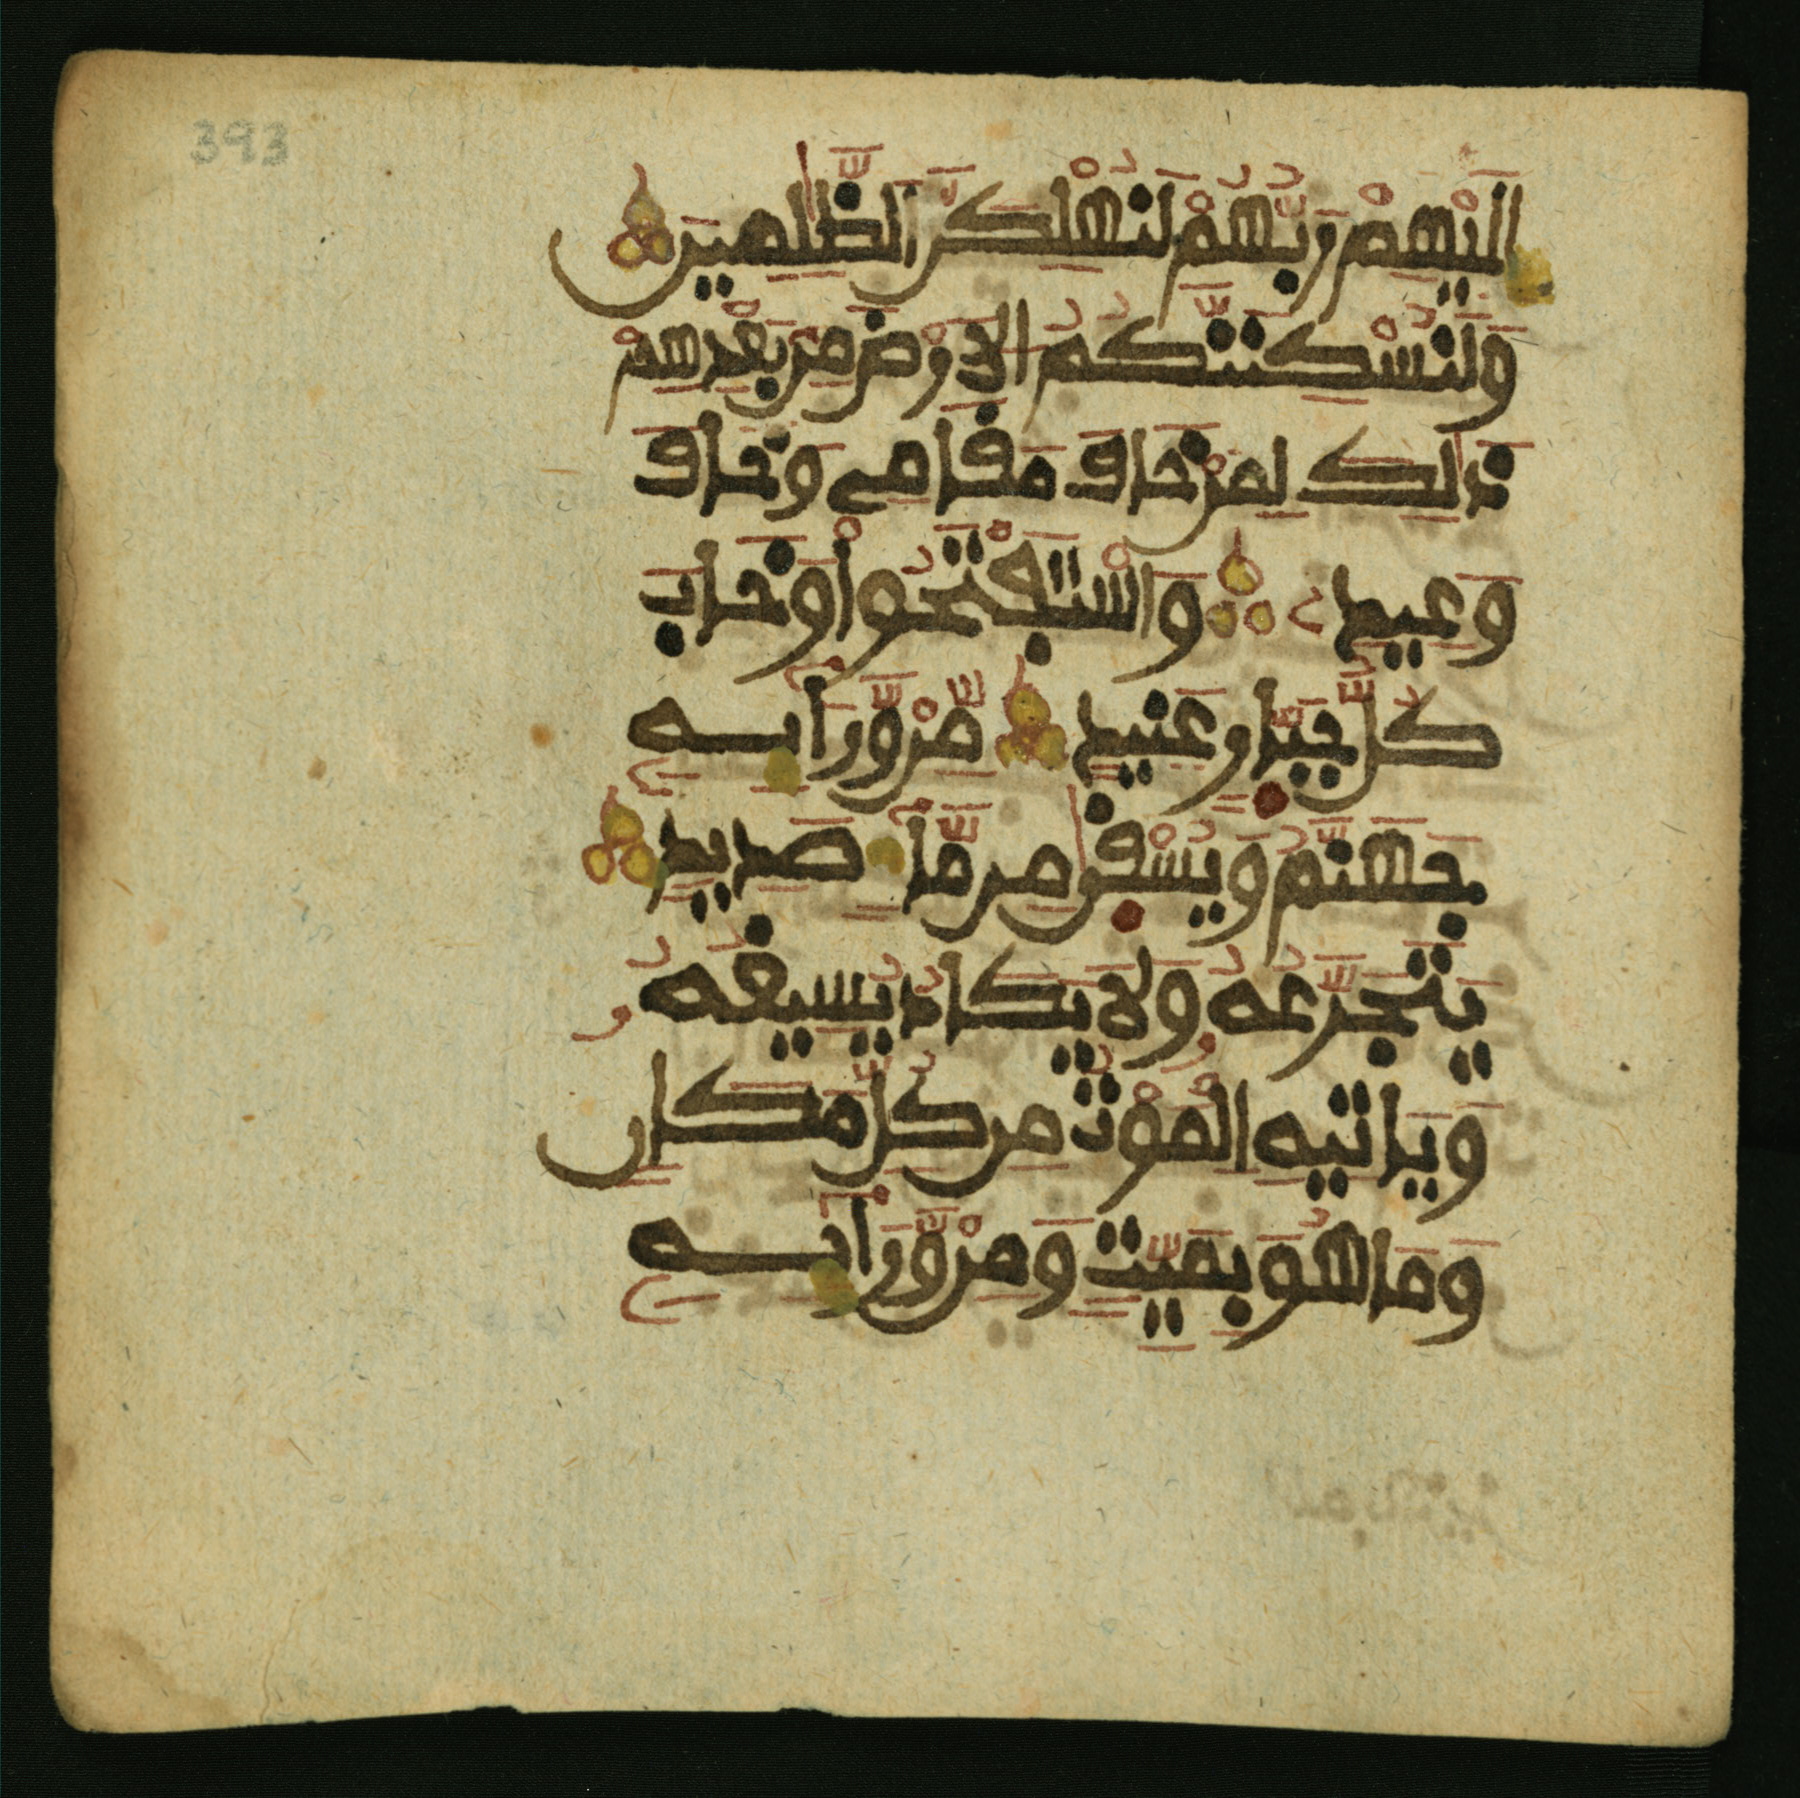 393
إِلَيْهِمْ رَبُّهُمْ لَنُهْلِكَنَّ الظَّٰلِمِينَ
وَلَنُسْكِنَنَّكُمُ الَارْضَ مِنۢ بَعْدِهِمْ
ذَٰلِكَ لِمَنْ خَافَ مَقَامِے وَخَافَ
وَعِيدِۦ وَاسْتَفْتَحُواْ وَخَابَ
كُلُّ جَبّ۪ارٍ عَنِيدٍ مِّنْ وَّرَآئِهِۦ
جَهَنَّمُ وَيُسْقَىٰ مِن مَّآءٍ صَدِيدٍ
يَتَجَرَّعُهُۥ وَلَا يَكَادُ يُسِيغُهُۥ
وَيَاتِيهِ الْمَوْتُ مِن كُلِّ مَكَانٍ
وَمَا هُوَ بِمَيِّتٍ وَمِنْ وَّرَآئِهِۦ